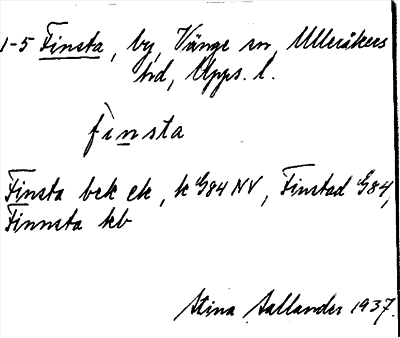 1-5 Finsta, by, Vänge sn, Ulleråkers
hd, Upps. l.
finsta
Finsta bek ek, k G84 NV, Finstad G84,
Finnsta kb
Stina Sallander 1937.